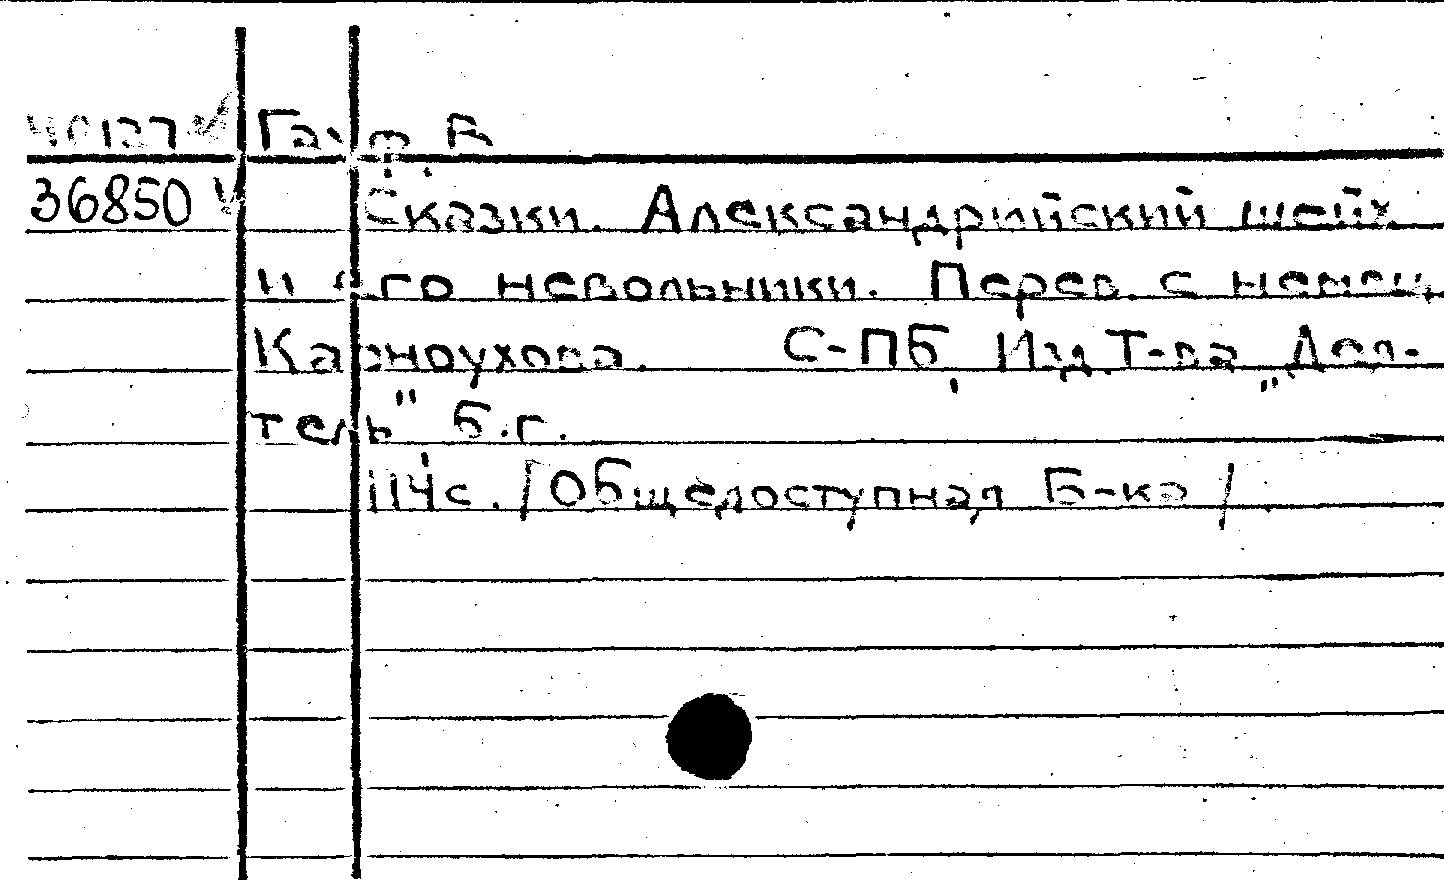 40127 Гауф, В.
36850 Сказки. Александрийский шейх
и его невольники. Перев. с немец.
Карноухова. С-ПБ, Изд. Т-ва „Дея-
тель" б.г.
114с. /Общедоступная Б-ка/